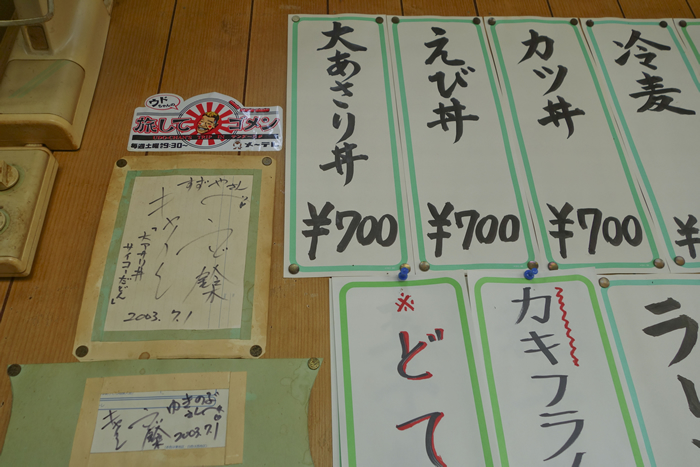 大あさり丼
¥700
えび丼
¥700
カツ丼
¥700
冷麦
¥
※どて
カキフライ
ラ
ウド
ちゃんの
旅してゴメン
毎週土曜19:30〜
メ〜テレ
すずやさん
江
大アサリ丼
サイコーだょん
2003.7.1
ゆきのぶ
さん江
2003.7.1